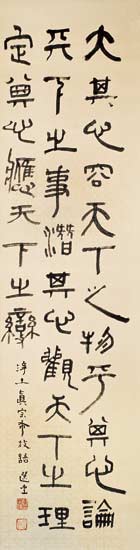 大其心容天下之物平其心論
天下之事潛其心觀天下之理
定其心應天下之變
淨土真宗 選堂